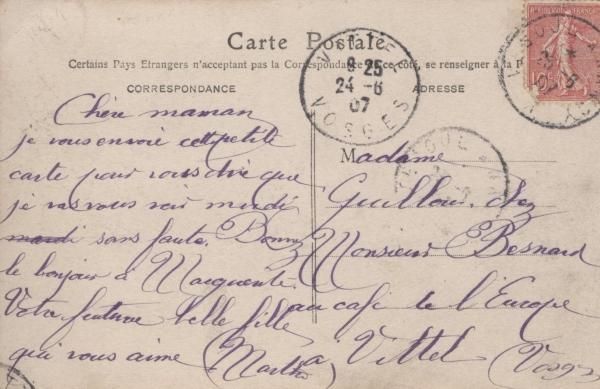 Carte Postale
Certains Pays Etrangers n'acceptant pas la Correspondance de ce côté, se renseigner à la P
CORRESPONDANCE
Chère maman
je vous envoie cette petite
carte pour vous dire que
je vas vous voir mardi
mardi sans faute. Donnez
le bonjour à Marguerite
Votre future belle fille
qui vous aime (Martha
ADRESSE
Madame
Guillou chez
Monsieur Besnard
au café de l'Europe
Vittel (Vosges
VITTEL
8 25
24 - 6
07
VOSGES
10